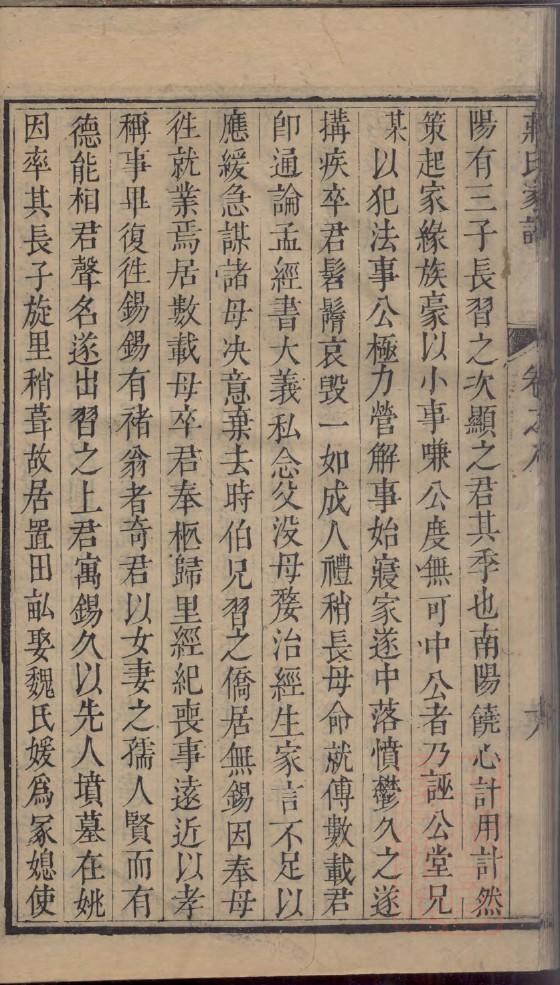 陽有三子長習之次顯之君其季也南陽饒心計用計然
策起家緣族豪以小事嗛公度無可中公者乃誣公堂兄
某以犯法事公極力營解事始寢家遂中落憤鬱久之遂
搆疾卒君髫髫哀毀一如成人禮稍長母命就傅數載君
卽通論孟經書大義私念父没母嫠治經生家言不足以
應緩急謀諸母决意棄去時伯兄習之僑居無錫因奉母
徃就業焉居數載母卒君奉柩歸里經紀喪事遠近以孝
稱事畢復徃錫錫有禇翁者奇君以女妻之孺人賢而有
德能相君聲名遂出習之上君寓錫久以先人墳墓在姚
因率其長子旋里稍葺故居置田畝娶魏氏媛爲冢媳使
氏家
卷之八